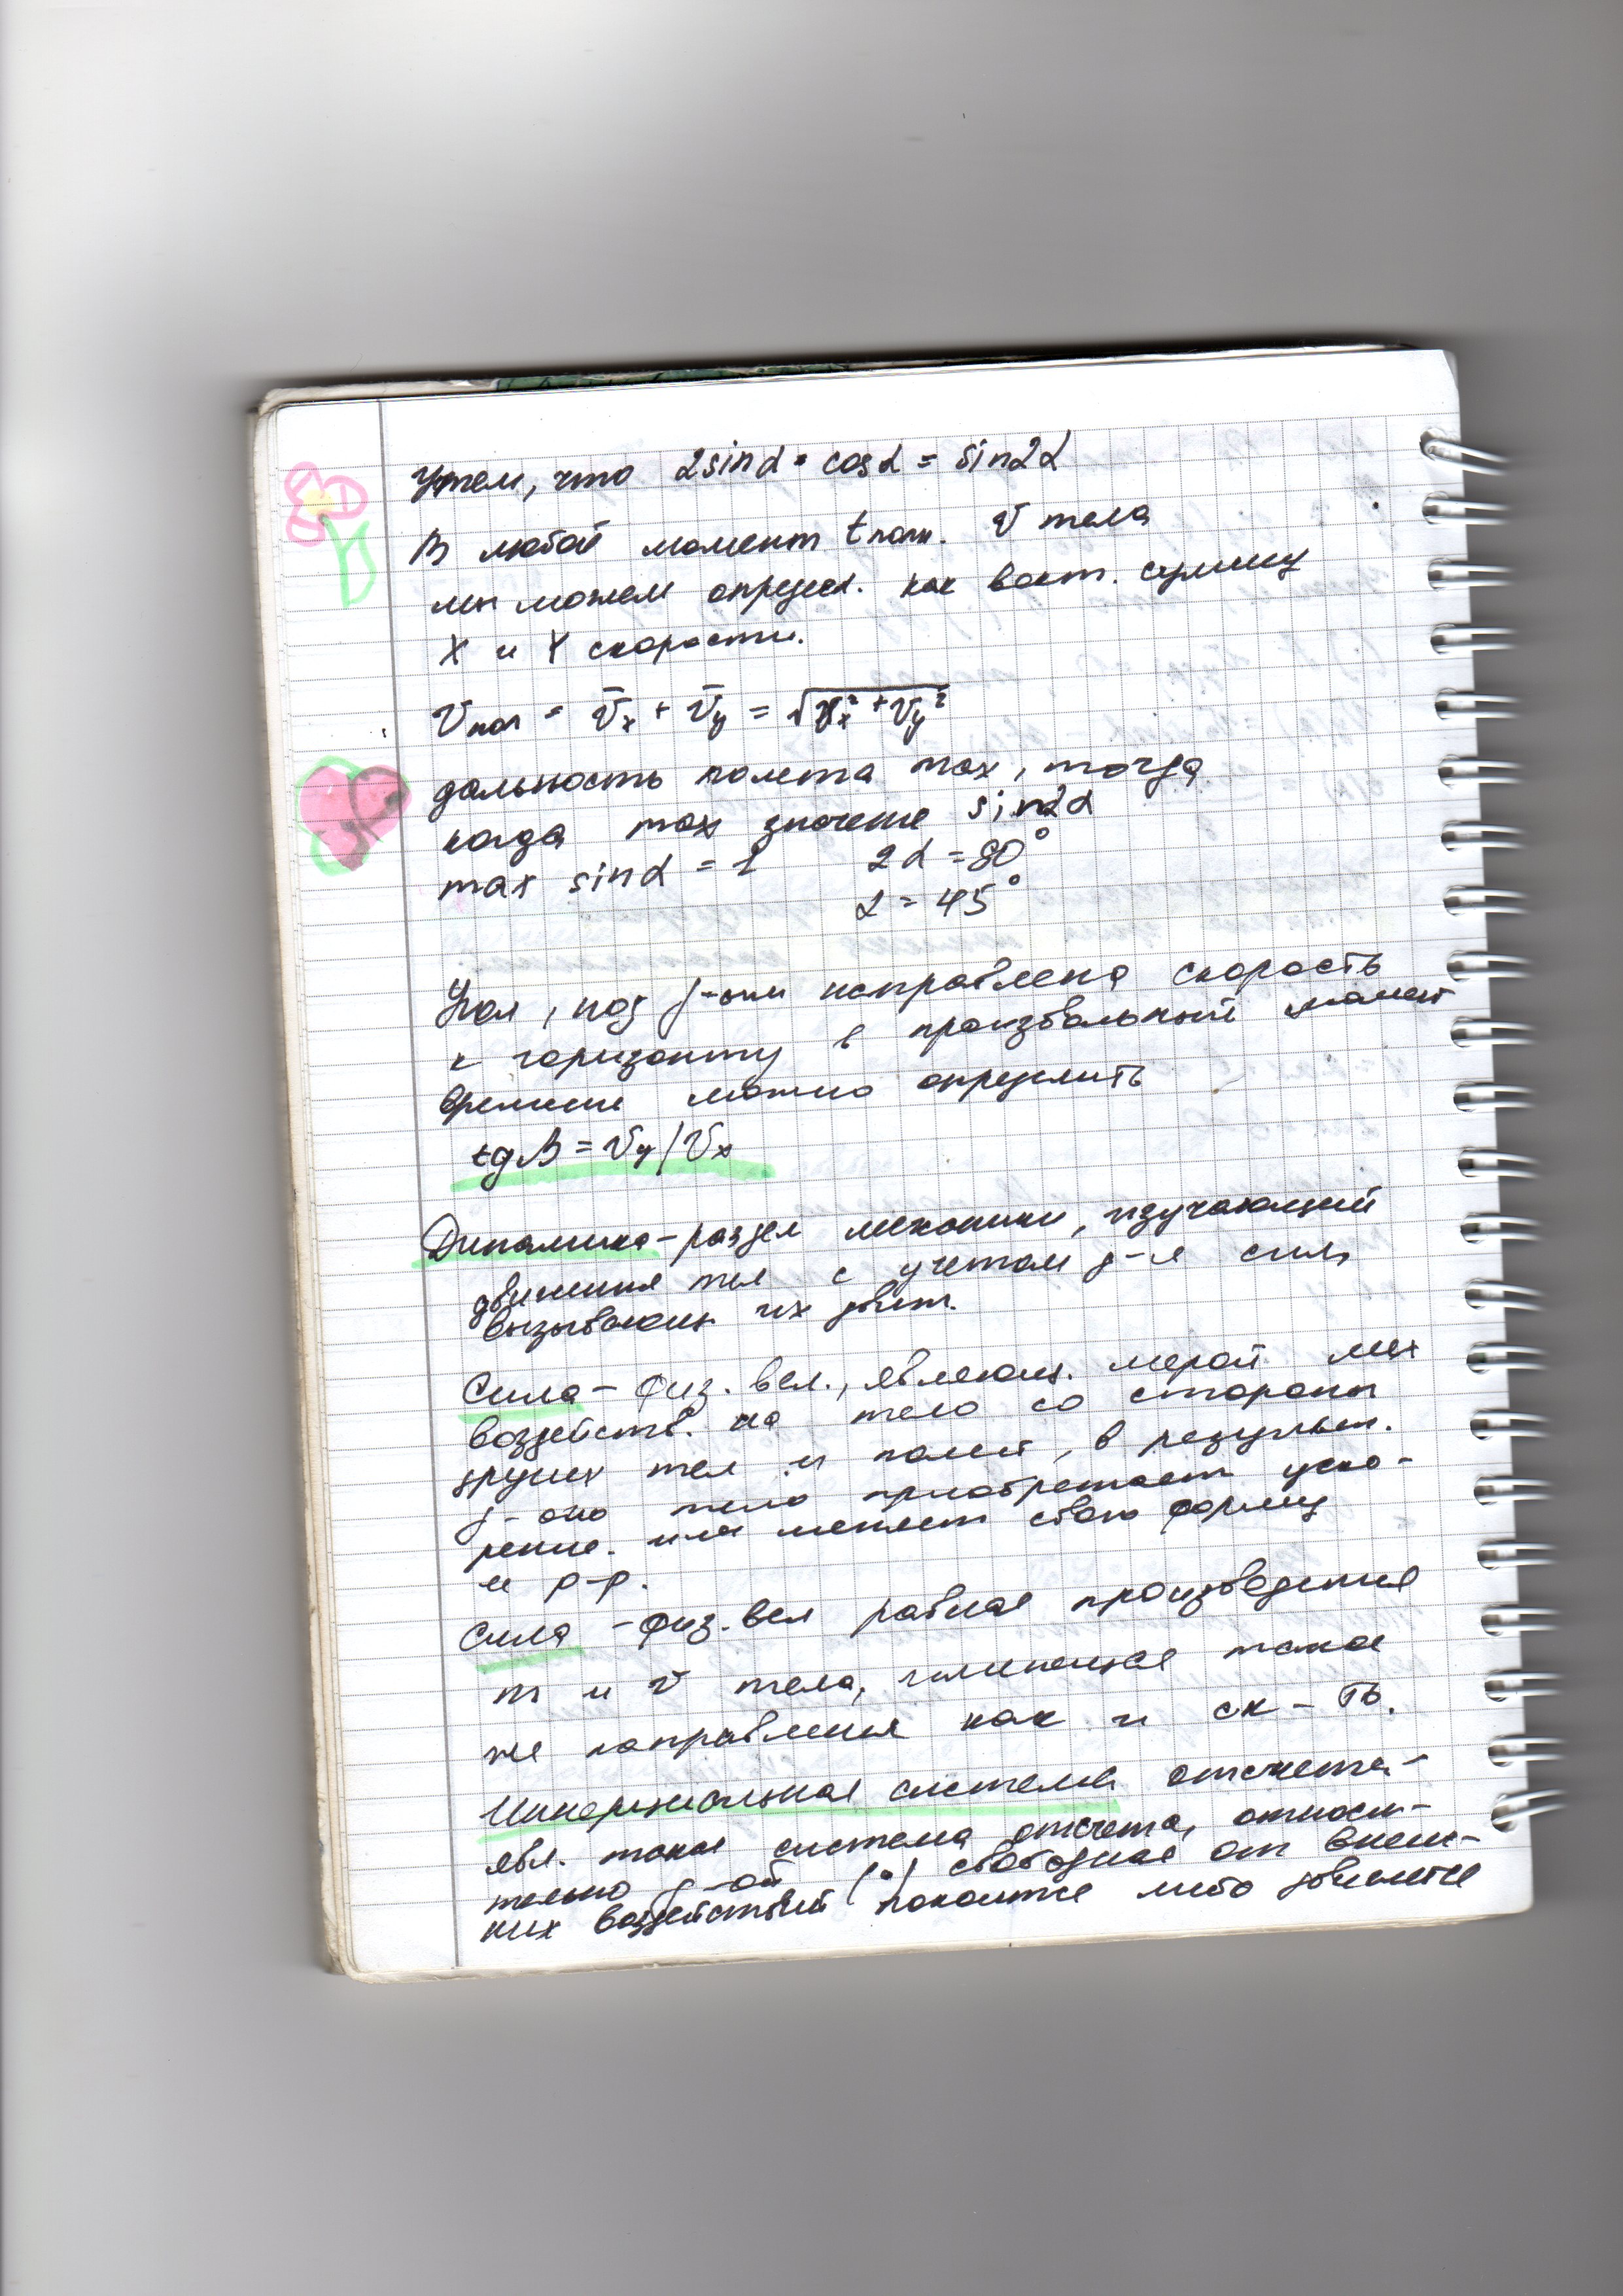 Учтем, что 2sinα • cosα = sin2α
В любой момент tполн. V тела
мы можем определ. как вект. сумму
X и Y скорости.
Vпол = V̄x + V̄y = √Vx² + Vy²
дальность полета max, тогда
когда max значение sin2α
max sinα = 1 2α = 90°
α = 45°
Угол, под j-ым направлена скорость
к горизонту в произвольный момент
времени можно определить
tgβ = Vy/Vx
Динамика - раздел механики, изучающий
движения тел с учетом д-я сил,
вызывающ. их движ.
Сила - физ. вел., являющ. мерой мех
воздейств. на тело со стороны
других тел и полей, в результ.
j-ого тело приобретает уско-
рение. или меняет свою форму
и р-р.
Сила - физ. вел равная произведения
m и v тела, имеющая такое
же направления как и ск-ть.
Инерциальная система отсчета-
явл. такая система отсчета, относи-
тельно j-ой (•) свободная от внеш-
них воздействий покоится либо движется